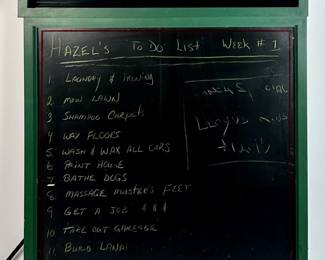 HAZEL'S TO DO LIST WEEK #1
1. LAUNDRY & IRONING
2. MOW LAWN
3 SHAMPOO CARPETS
4 WAX FLOORS
5 WASH & WAX ALL CARS
6 PAINT HOUSE
7 BATHE DOGS
8. MASSAGE MASTER'S FEET
9 GET A JOB $$$
10 TAKE OUT GARBAGE
11. BUILD LANAI